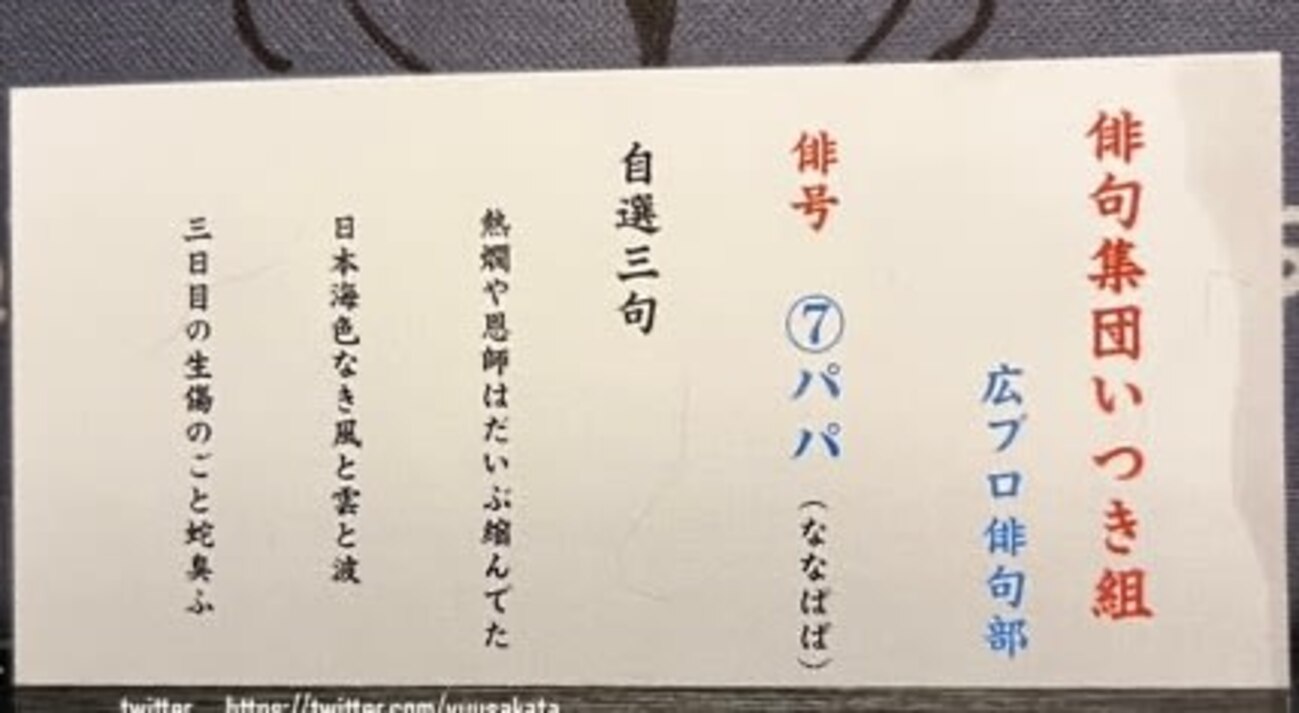 俳句集団いつき組
広ブロ俳句部
俳号 ⑦パパ（ななぱぱ）
自選三句
熱燗や恩師はだいぶ縮んでた
日本海色なき風と雲と波
三日目の生傷のごと蛇臭ふ
twitter https://twitter.com/yuusakata